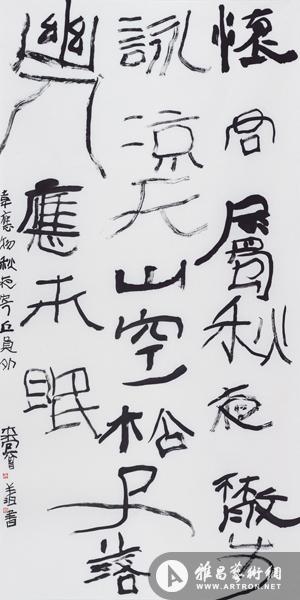 懷君屬秋夜散步
詠涼天山空松子落
幽人應未眠
韋應物秋夜寄丘員外
雅昌藝術網
WWW.ARTRON.NET